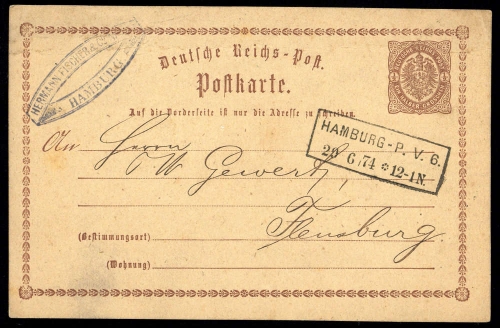 HERMANN FISCHER &
HAMBURG
Deutsche Reichs-Post.
Postkarte.
Auf die Vorderseite ist nur die Adresse zu schreiben.
HAMBURG-P. V. 6.
29 6 74 *12-1N.
An Herrn
W Gewert,
Flensburg.
(Bestimmungsort)
(Wohnung)